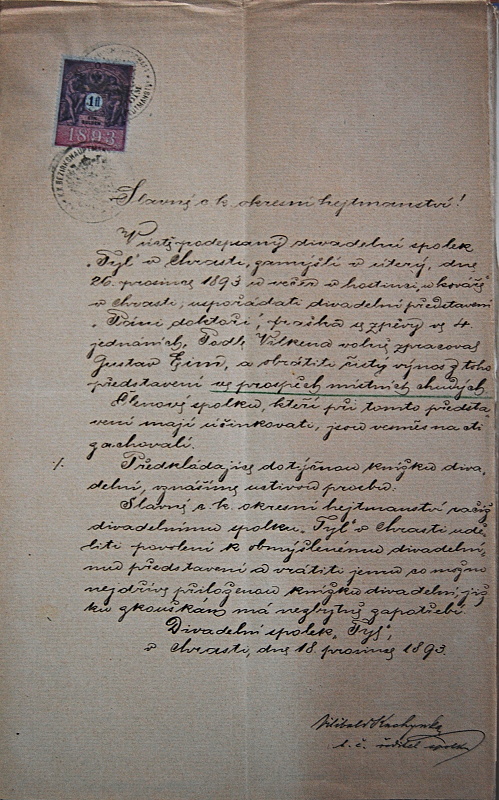 1893
K.K. BEZIRKSHAUPTMANN
Slavné c. k. okresní hejtmanství!
V úctě podepsaný divadelní spolek
„Tyl“ v Chrasti, zamýšlí v úterý, dne
26. prosince 1893 u večer v hostinci „u kováře“
v Chrasti, uspořádati divadelní představení
„Páni doktoři“, fraška se zpěvy ve 4.
jednáních, Podle Valkena volně zpracoval
Gustav Eim, a obrátiti čistý výnos z toho
představení ve prospěch místních chudých.
Členové spolku, kteří při tomto předsta-
vení mají účinkovati, jsou vesměs na cti
zachovalí.
./. Předkládajíc dotýčnou knížku diva-
delní, vznášíme uctivou prosbu:
Slavné c. k. okresní hejtmanství račiž
divadelnímu spolku „Tyl“ v Chrasti udě-
liti povolení k obmýšlenému divadelní-
mu představení a vrátiti jemu co možno
nejdříve přiloženou knížku divadelní, jíž
ku zkouškám má nezbytně zapotřebí.
Divadelní spolek „Tyl“,
v Chrasti, dne 18. prosince 1893.
t. č. ředitel spolku